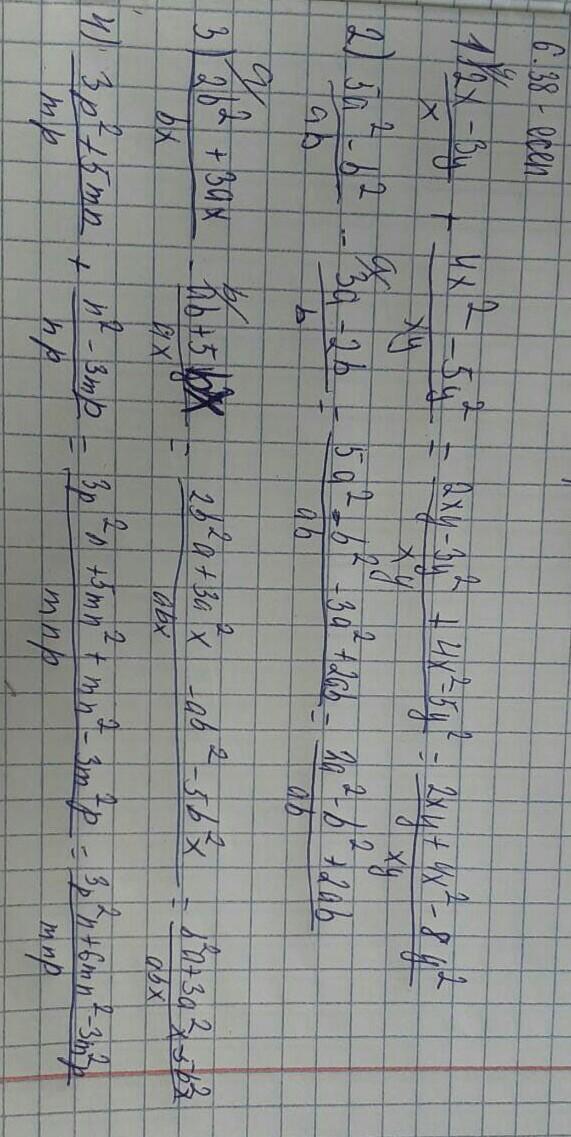 6.38 - осел
1) y/ (2x - 3y)/x + (4x² - 5y²)/xy = (2xy - 3y² + 4x² - 5y²)/xy = (2xy + 4x² - 8y²)/xy
2) (5a² - b²)/ab - a/ (3a - 2b)/b = (5a² - b² - 3a² + 2ab)/ab = (2a² - b² + 2ab)/ab
3) a/ (2b² + 3ax)/bx - b/ (ab + 5bx)/ax = (2b²a + 3a²x - ab² - 5b²x)/abx = (b²a + 3a²x - 5b²x)/abx
4) (3p² + 5mn)/mp + (n² - 3mp)/np = (3p²n + 5mn² + mn² - 3m²p)/mnp = (3p²n + 6mn² - 3m²p)/mnp